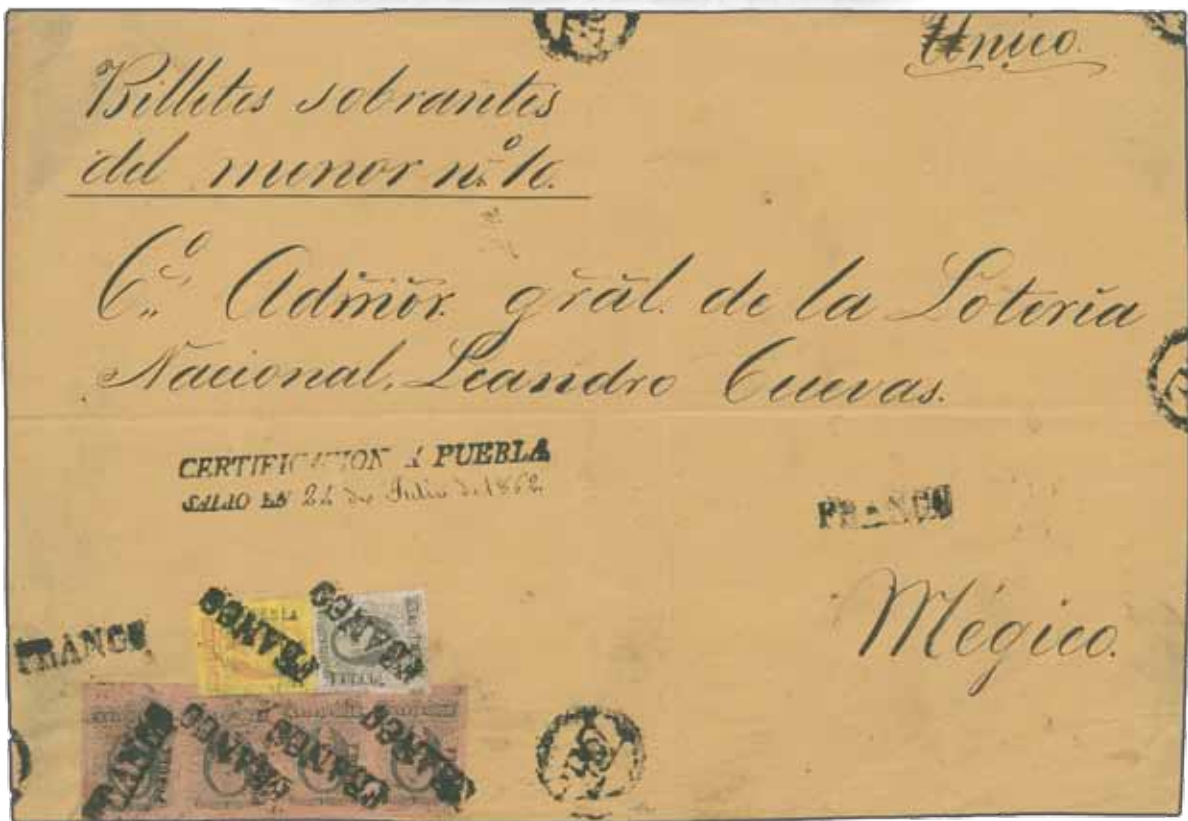 Unico.
Billetes sobrantes
del menor nº. 10.
C.º Admõr. gräl. de la Lotería
Nacional, Leandro Cuevas.
CERTIFICACION A PUEBLA
SALIO EN 22 de Julio de 1862
FRANCO
Mégico.
FRANCO
PUEBLA
FRANCO
FRANCO
PUEBLA
FRANCO
FRANCO
FRANCO
FRANCO